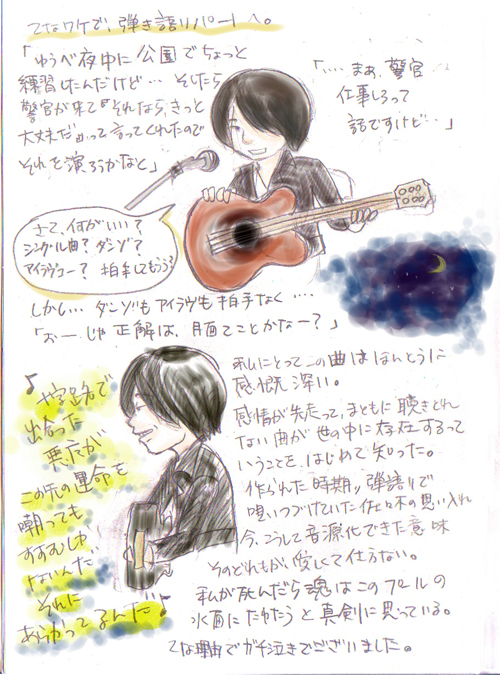 てなワケで、弾き語りパートへ。
「ゆうべ夜中に公園でちょっと
練習したんだけど… そしたら
警官が来て『それなら、きっと
大丈夫だ』って言ってくれたので
それを演ろうかなと」
「… まぁ、警官
仕事しろって
話ですけど…」
さて、何がいい？
シングル曲？ダンゾ？
アイラヴユー？ 拍手してもらう？
しかし… ダンゾもアイラヴも拍手なく….
「おー じゃ正解は、月面てことかなー？」
♪
十字路で
出会った
悪魔が
この先の運命を
嘲っても
すすむしか
ないんだ
それに
あらがってるんだ♪
私にとってこの曲はほんとうに
感慨深い。
感情が先走って、まともに聴きとれ
ない曲が世の中に存在するって
いうことを、はじめて知った。
作られた時期、弾語りで
唄いつづけていた佐々木の思い入れ
今、こうして音源化できた意味
そのどれもが、愛しくて仕方ない。
私が死んだら魂はこのプールの
水面にたゆたうと真剣に思っている。
てな理由でガチ泣きでございました。